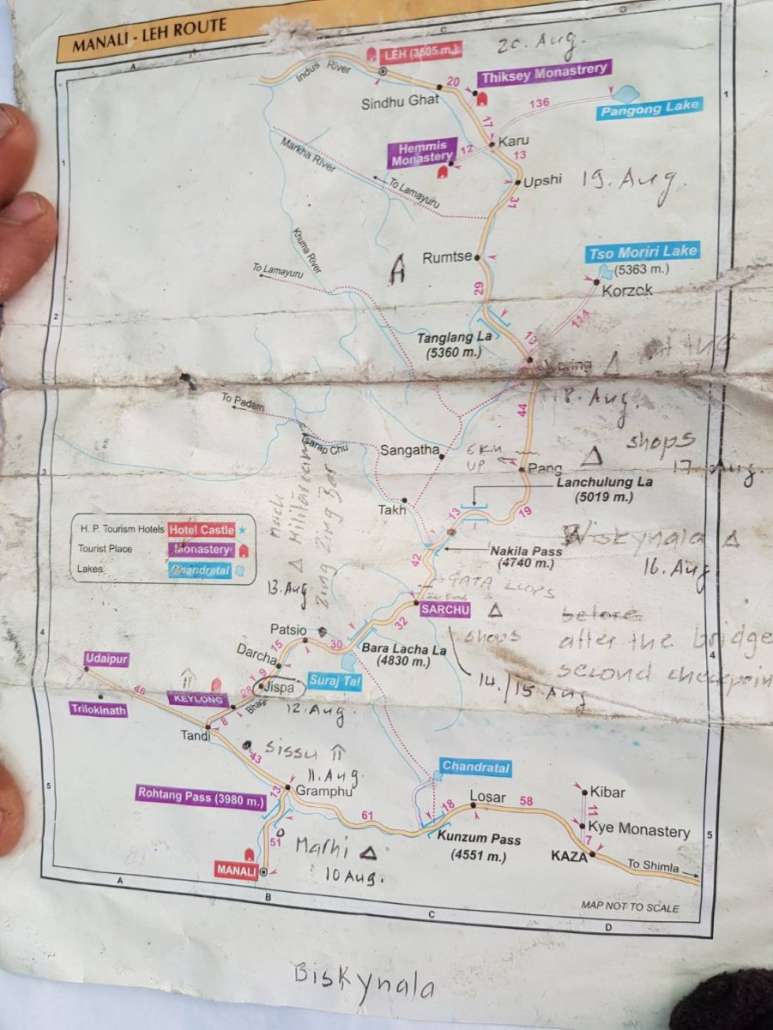 MANALI - LEH ROUTE
A
C
D
LEH (3505 m.)
20. Aug.
Indus River
20
Thiksey Monastrery
Sindhu Ghat
136
Pangong Lake
1
17
Hemmis
Monastery
12
Karu
13
Markha River
To Lamayuru
Upshi
19. Aug.
1
31
Khurna River
Rumtse
Tso Moriri Lake
(5363 m.)
To Lamayuru
A
29
Korzok
114
2
Tanglang La
(5360 m.)
Δ
18. Aug.
To Padem
44
Tsarap Chu
Sangatha
6KM
UP
Pang
Δ
shops
17. Aug.
3
Lanchulung La
(5019 m.)
Takh
13
19
H. P. Tourism Hotels
Hotel Castle
Tourist Place
Monastery
Lakes
Chandratal
Zing Zing Bar
Δ
13. Aug
42
Nakila Pass
(4740 m.)
Δ
16. Aug
GATA LOOPS
SARCHU
Δ
before
32
shops
after the bridge
second checkpoint
14./15. Aug
4
4
Patsio
15
30
Bara Lacha La
(4830 m.)
Darcha
Udaipur
Suraj Tal
9
Jispa
KEYLONG
12. Aug.
46
Trilokinath
8
Tandi
43
Sissu
11. Aug.
Chandratal
Rohtang Pass (3980 m.)
13
Gramphu
61
18
Losar
58
Kibar
11
Kye Monastery
5
5
Kunzum Pass
(4551 m.)
7
KAZA
To Shimla
51
Marhi Δ
MANALI
10 Aug.
MAP NOT TO SCALE
A
B
C
D
Biskynala